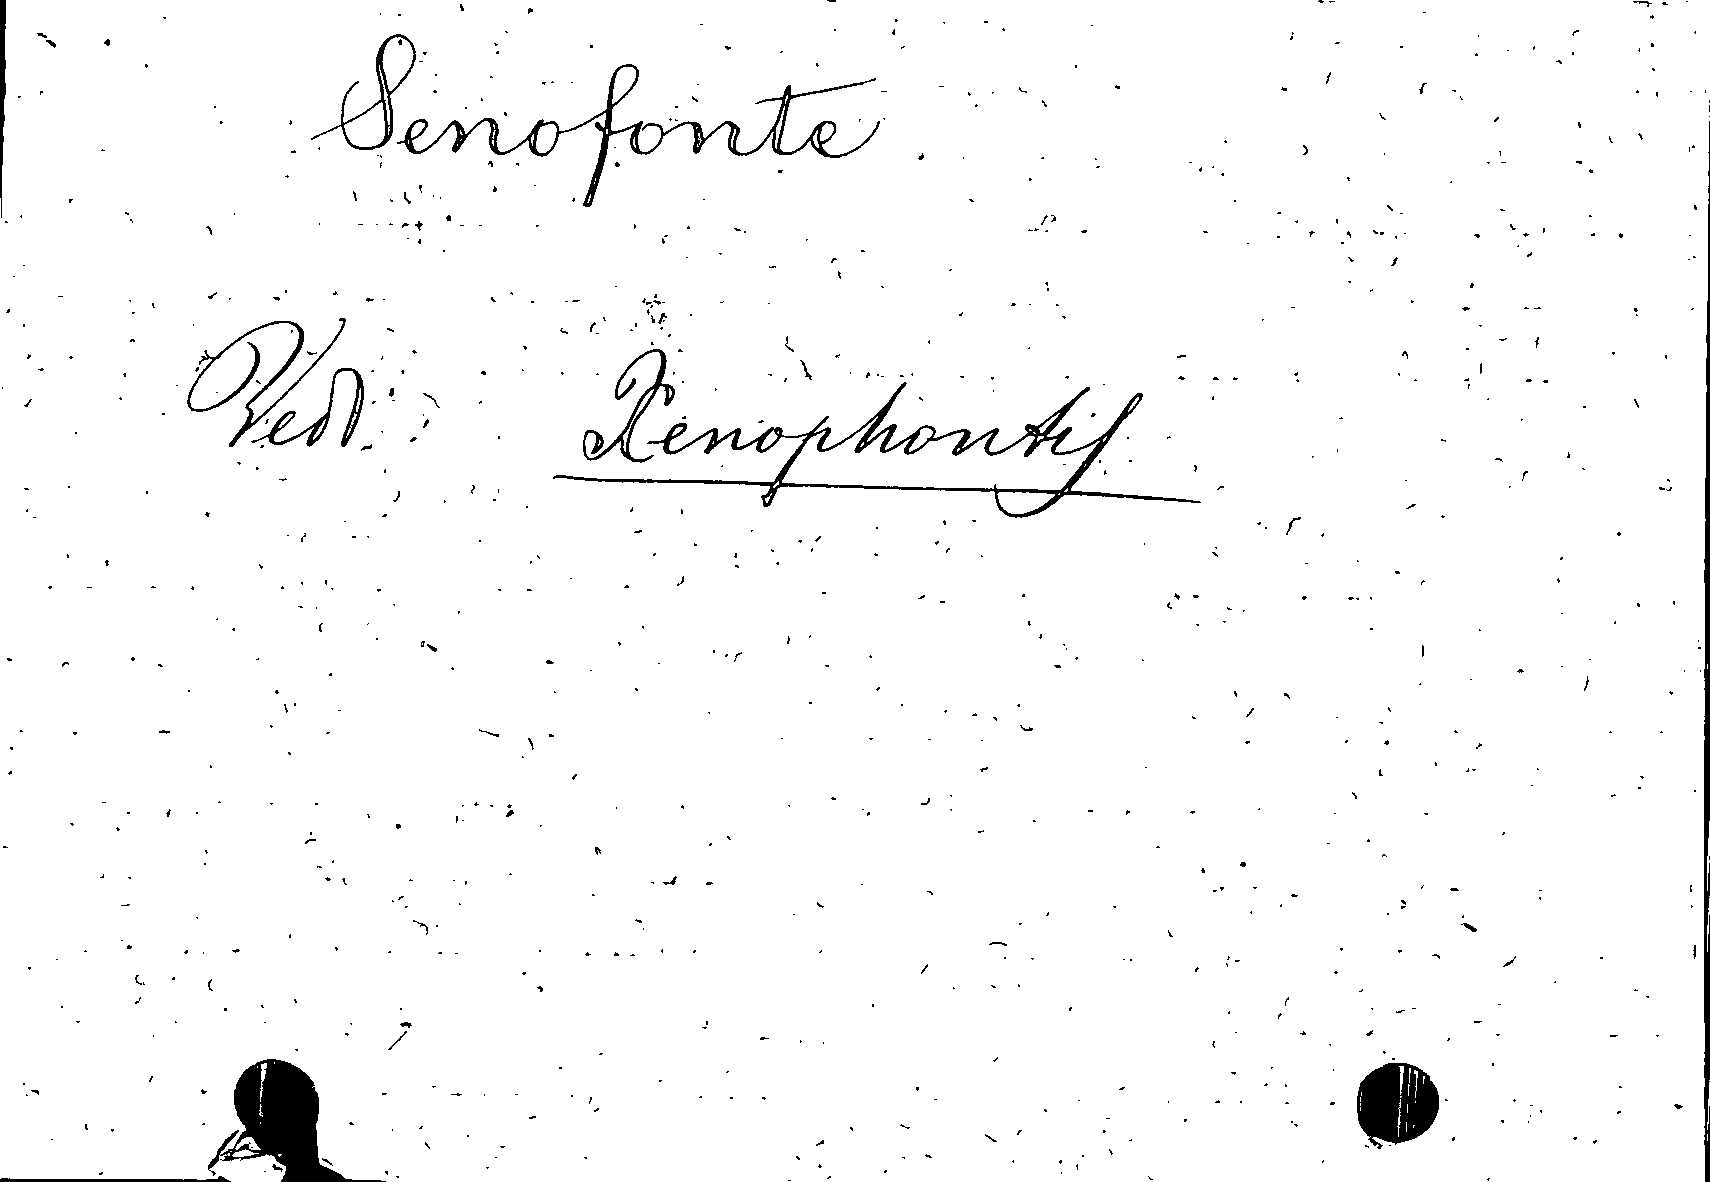 Senofonte
Ved. Xenophontis